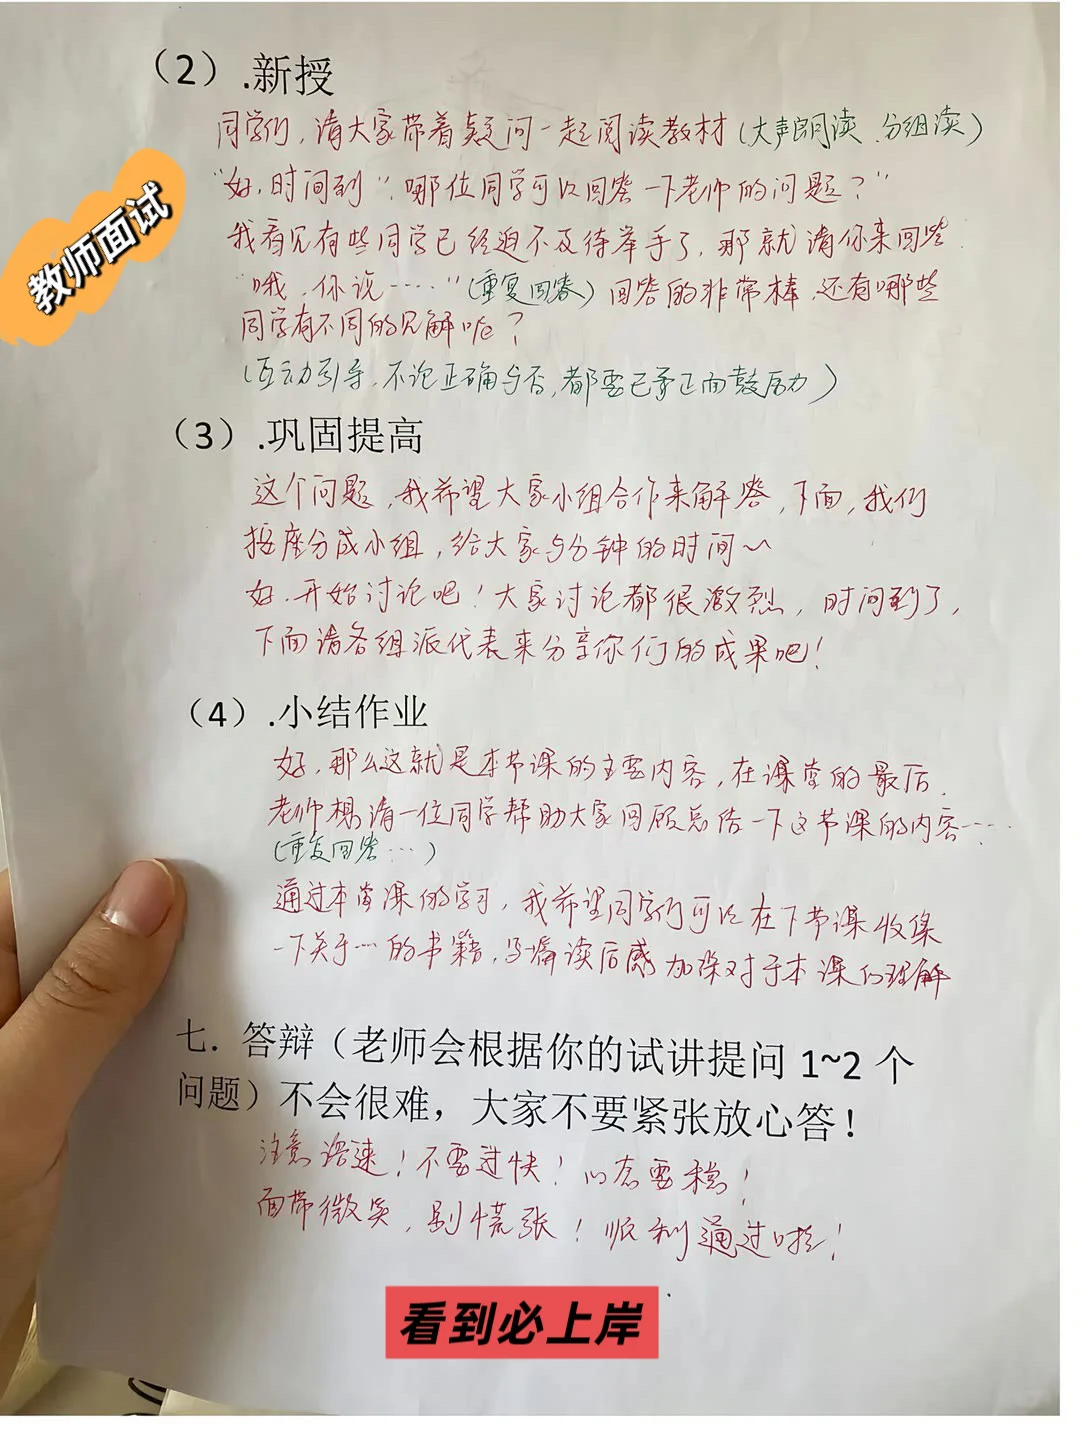 （2）.新授
同学们，请大家带着疑问一起阅读教材（大声朗读、分组读）
“好，时间到“，哪位同学可以回答一下老师的问题？”
教师面试
我看见有些同学已经迫不及待举手了，那就请你来回答.
“哦，你说……”（重复回答）回答的非常棒，还有哪些
同学有不同的见解呢？
（互动引导，不论正确与否，都要已予正面鼓励）
（3）.巩固提高
这个问题，我希望大家小组合作来解答，下面，我们
按座分成小组，给大家5分钟的时间～
好，开始讨论吧！大家讨论都很激烈，时间到了，
下面请各组派代表来分享你们的成果吧！
（4）.小结作业
好，那么这就是本节课的主要内容，在课堂的最后，
老师想请一位同学帮助大家回顾总结一下这节课的内容……
（重复回答…）
通过本堂课的学习，我希望同学们可以在下节课收集
一下关于…的书籍，写篇读后感加深对于本课的理解
七．答辩（老师会根据你的试讲提问 1~2 个
问题）不会很难，大家不要紧张放心答！
注意语速！不要过快！心态要稳！
面带微笑，别慌张！顺利通过啦！
看到必上岸